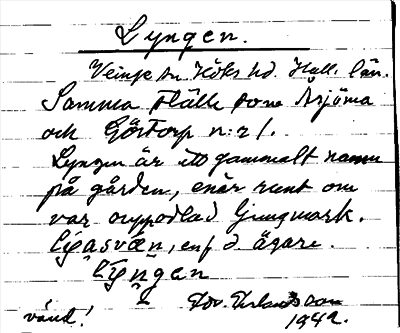 Lyngen.
Veinge sn Höks hd. Hall. län.
Samma ställe som Åsjöma
och Göstorp n:21.
Lyngen är ett gammalt namn
på gården, enär runt om
var ouppodlad ljungmark.
enl d. ägare.
lyŋgen
vänd!
1942.